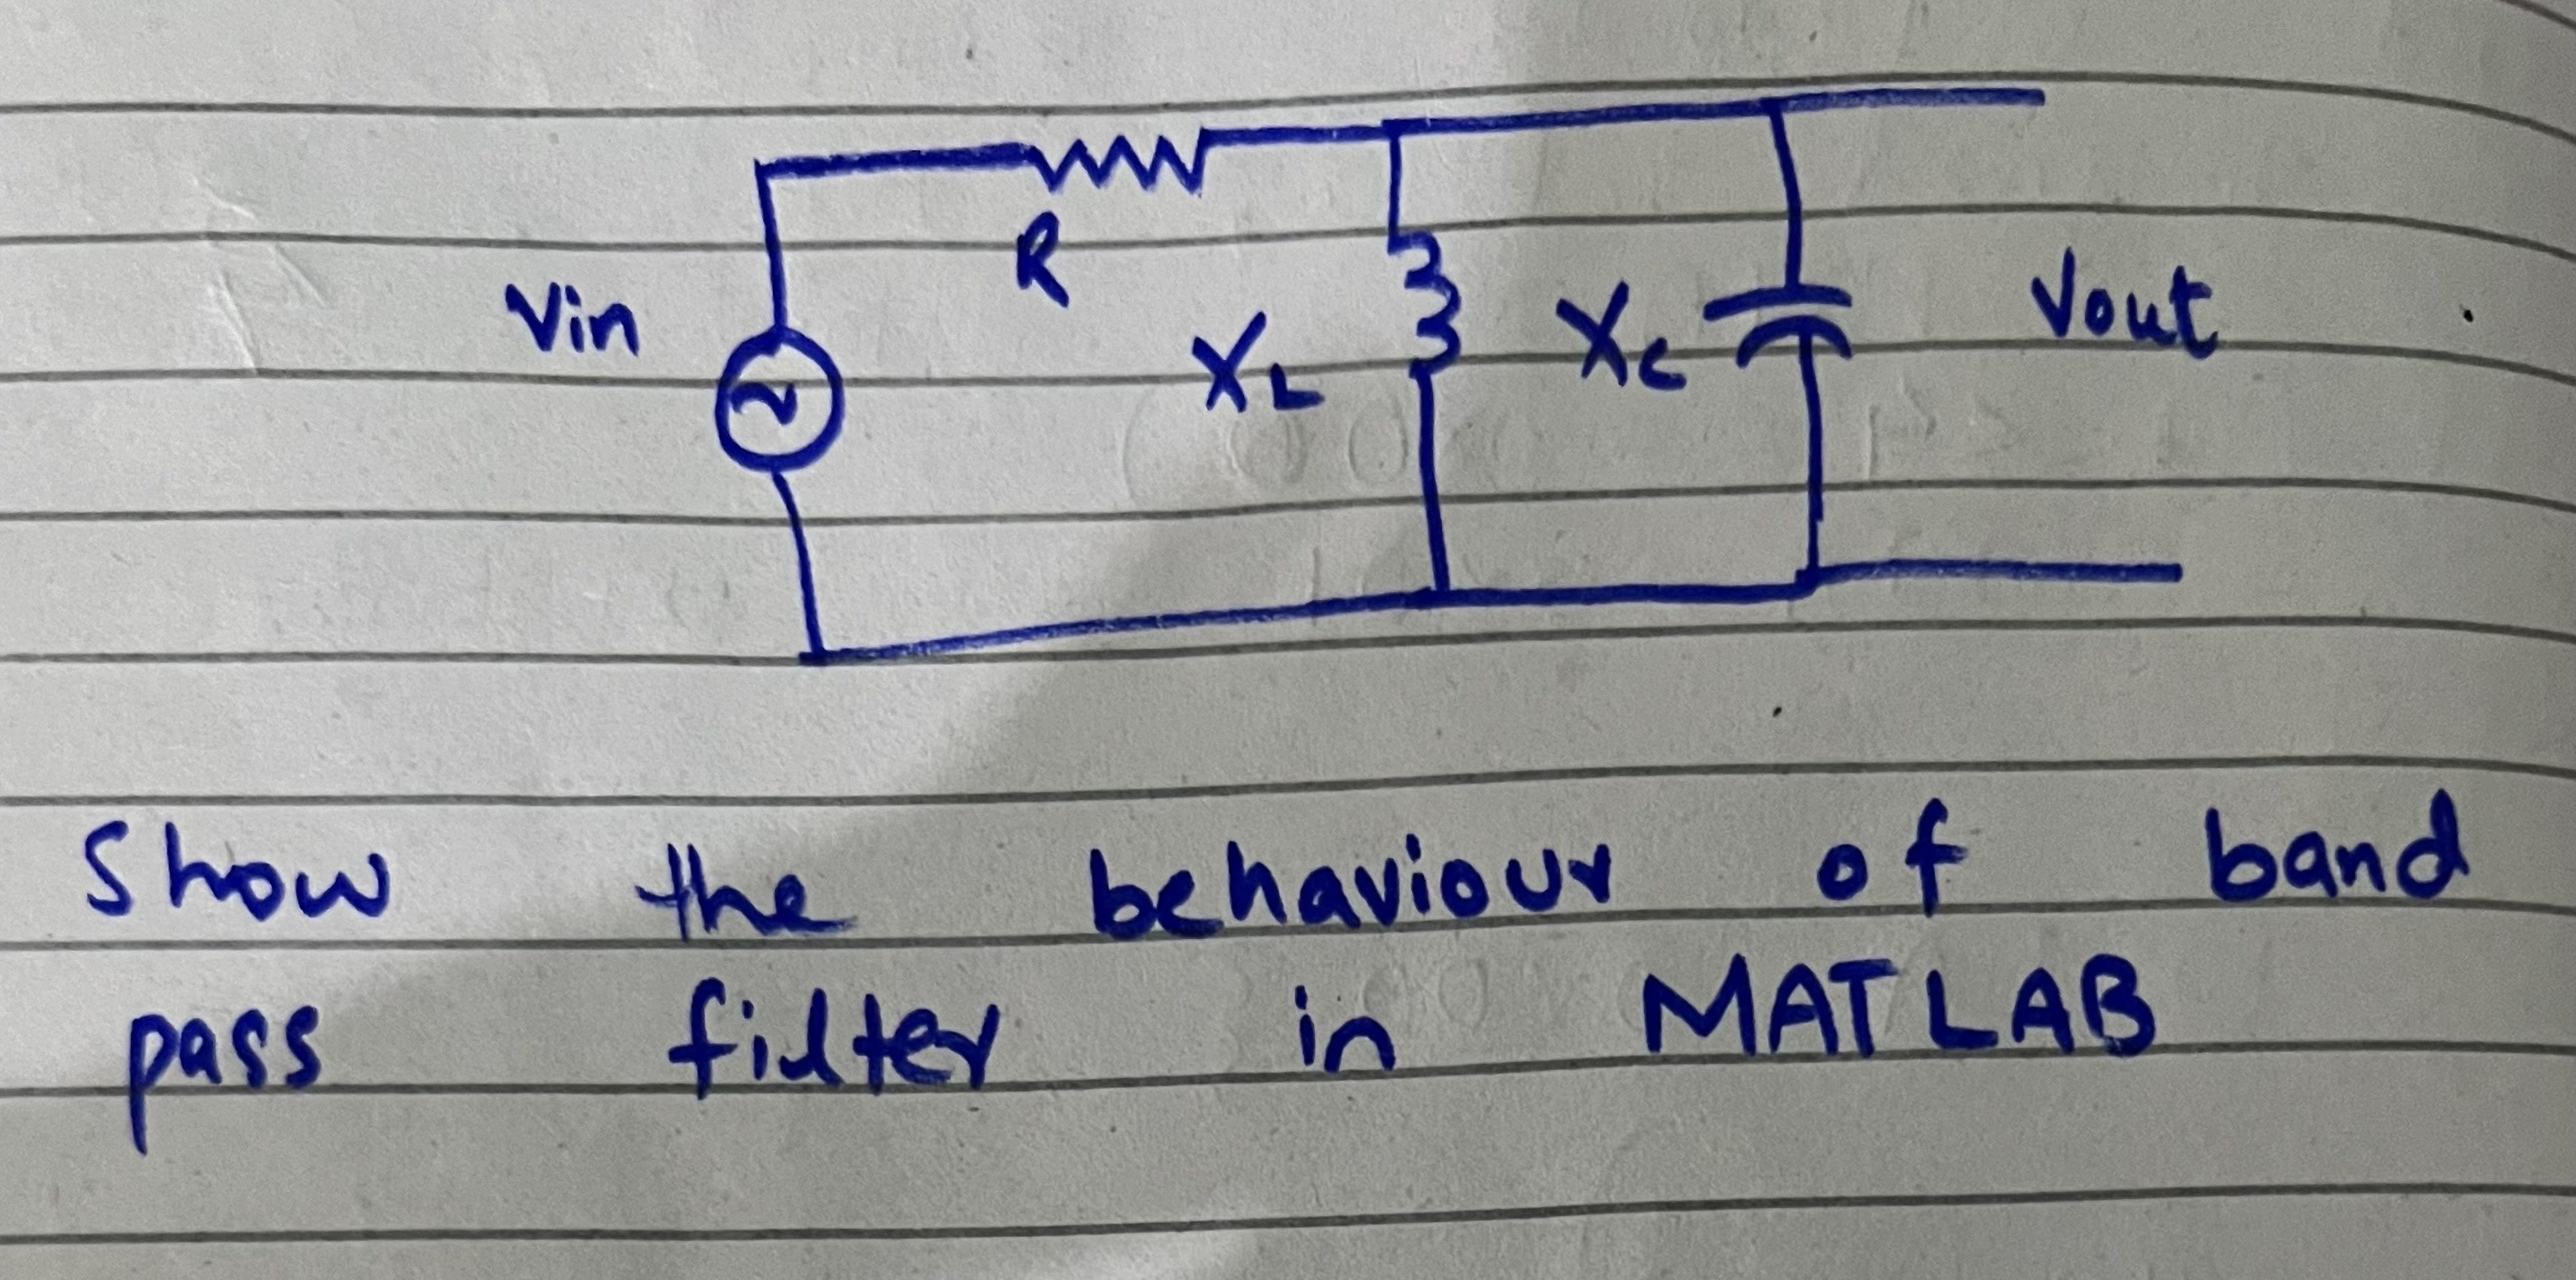 R
Vin
XL
Xc
Vout
Show the behaviour of band
pass filter in MATLAB